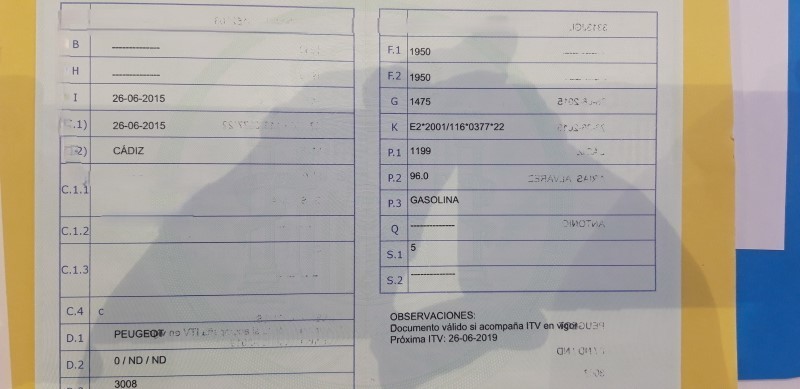 B --------------
H --------------
I 26-06-2015
26-06-2015
CÁDIZ
C.1.1
C.1.2
C.1.3
C.4 c
D.1 PEUGEOT
D.2 0 / ND / ND
3008
F.1 1950
F.2 1950
G 1475
K E2*2001/116*0377*22
P.1 1199
P.2 96.0
P.3 GASOLINA
Q --------------
S.1 5
S.2 --------------
OBSERVACIONES:
Documento válido si acompaña ITV en vigor
Próxima ITV: 26-06-2019